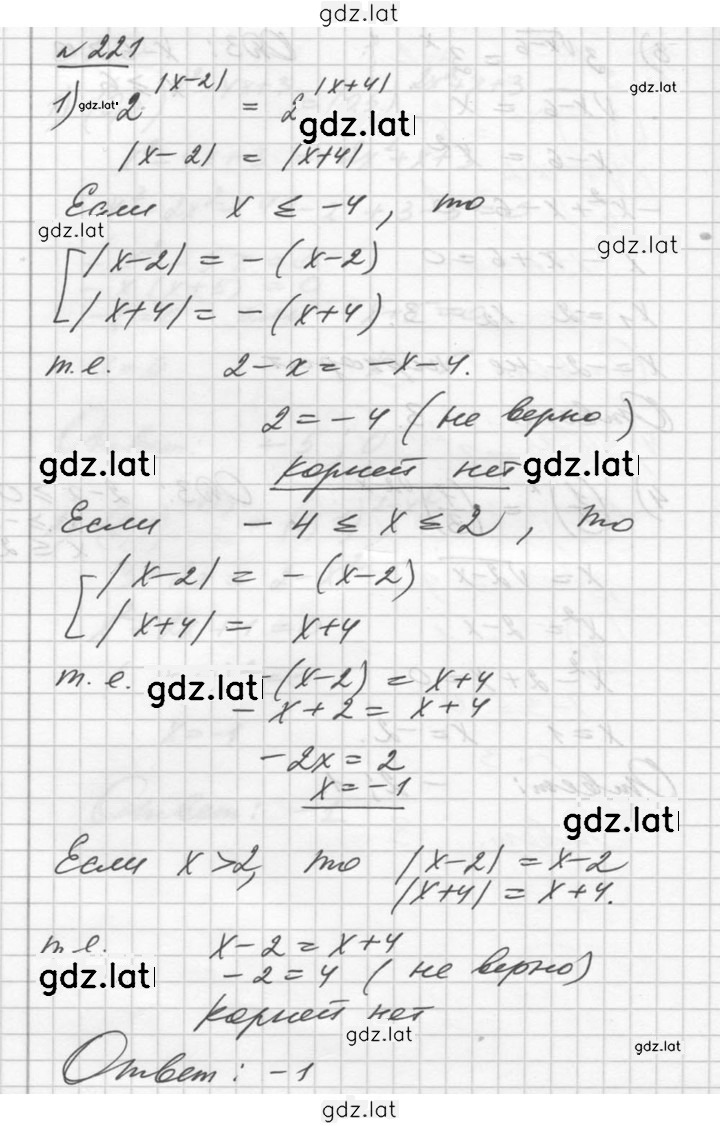 gdz.lat
№ 221
gdz.lat
1) gdz.lat 2^|x-2| = 2^|x+4|
gdz.lat
|x-2| = |x+4|
Если x ≤ -4, то
gdz.lat
gdz.lat
[ |x-2| = -(x-2)
|x+4| = -(x+4)
т.е. 2-x = -x-4.
2 = -4 (не верно)
gdz.lat корней нет gdz.lat
Если -4 ≤ x ≤ 2, то
[ |x-2| = -(x-2)
|x+4| = x+4
т.е. gdz.lat -(x-2) = x+4
-x+2 = x+4
-2x = 2
x = -1
gdz.lat
Если x > 2, то |x-2| = x-2
|x+4| = x+4.
т.е. x-2 = x+4
gdz.lat -2 = 4 (не верно)
корней нет
gdz.lat
gdz.lat
Ответ: -1
gdz.lat